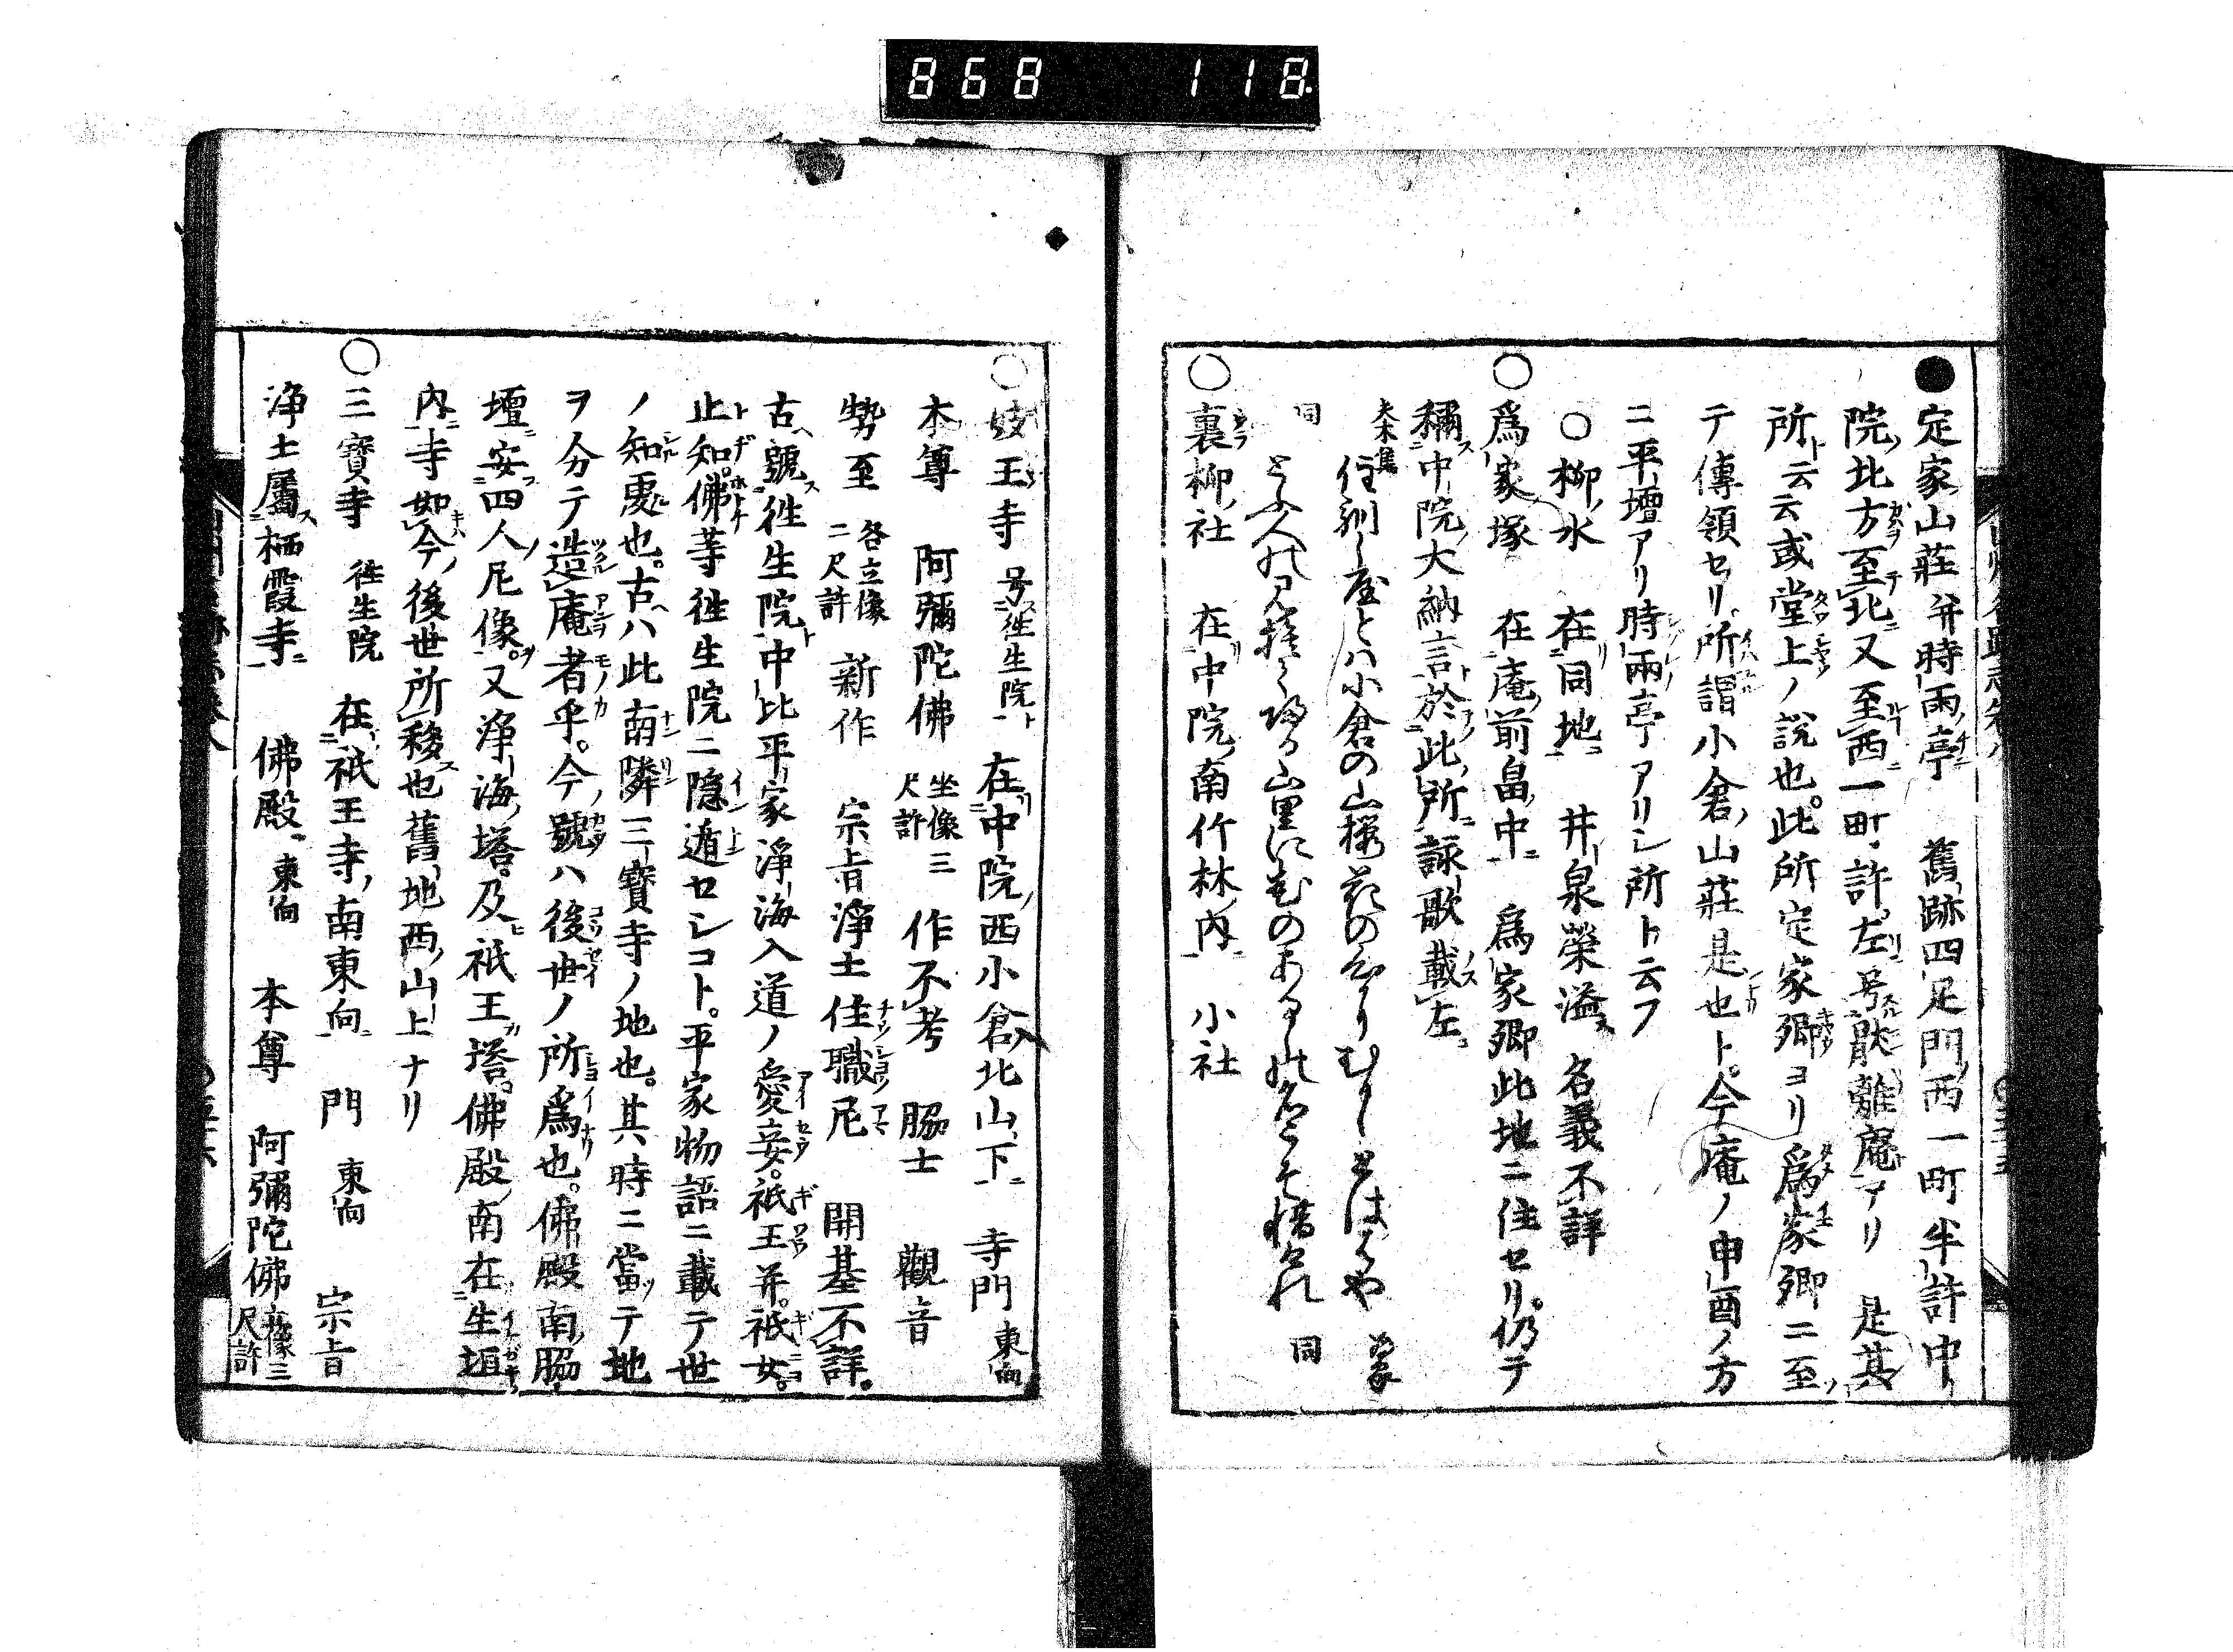 868 118
●定家山莊并時雨亭 舊跡四足門西一町半許中
院北方至北又至西一町許左号厭離庵アリ 是其
所ト云云或堂上ノ說也此所定家卿ヨリ爲家卿ニ至
テ傳領セリ所謂小倉山莊是也ト今庵ノ申酉ノ方
ニ平壇アリ時雨亭アリシ所ト云フ
○柳水 在同地 井泉榮溢 名義不詳
○爲家塚 在庵前畠中 爲家卿此地ニ住セリ仍テ
稱中院大納言於此所詠歌載左
夫木集
同
同
○裏柳社 在中院南竹林內 小社
○妓王寺 号往生院 在中院西小倉北山下 寺門 東向
本尊 阿彌陀佛 坐像三尺許 作不考 脇士 觀音
勢至 各立像二尺許 新作 宗旨淨土住職尼 開基不詳
古號往生院中比平家淨海入道ノ愛妾祇王并祇女
止知佛等往生院ニ隱遁セシコト平家物語ニ載テ世
ノ知處也古ハ此南隣三寶寺ノ地也其時ニ當テ地
ヲ分テ造庵者乎今號ハ後世ノ所爲也佛殿南脇
壇安四人尼像又淨海塔及祇王塔佛殿南在生垣
內寺如今後世所移也舊地西山上ナリ
○三寶寺 往生院 在祇王寺南東向 門 東向 宗旨
淨土屬栖霞寺 佛殿 東向 本尊 阿彌陀佛 立像三尺許